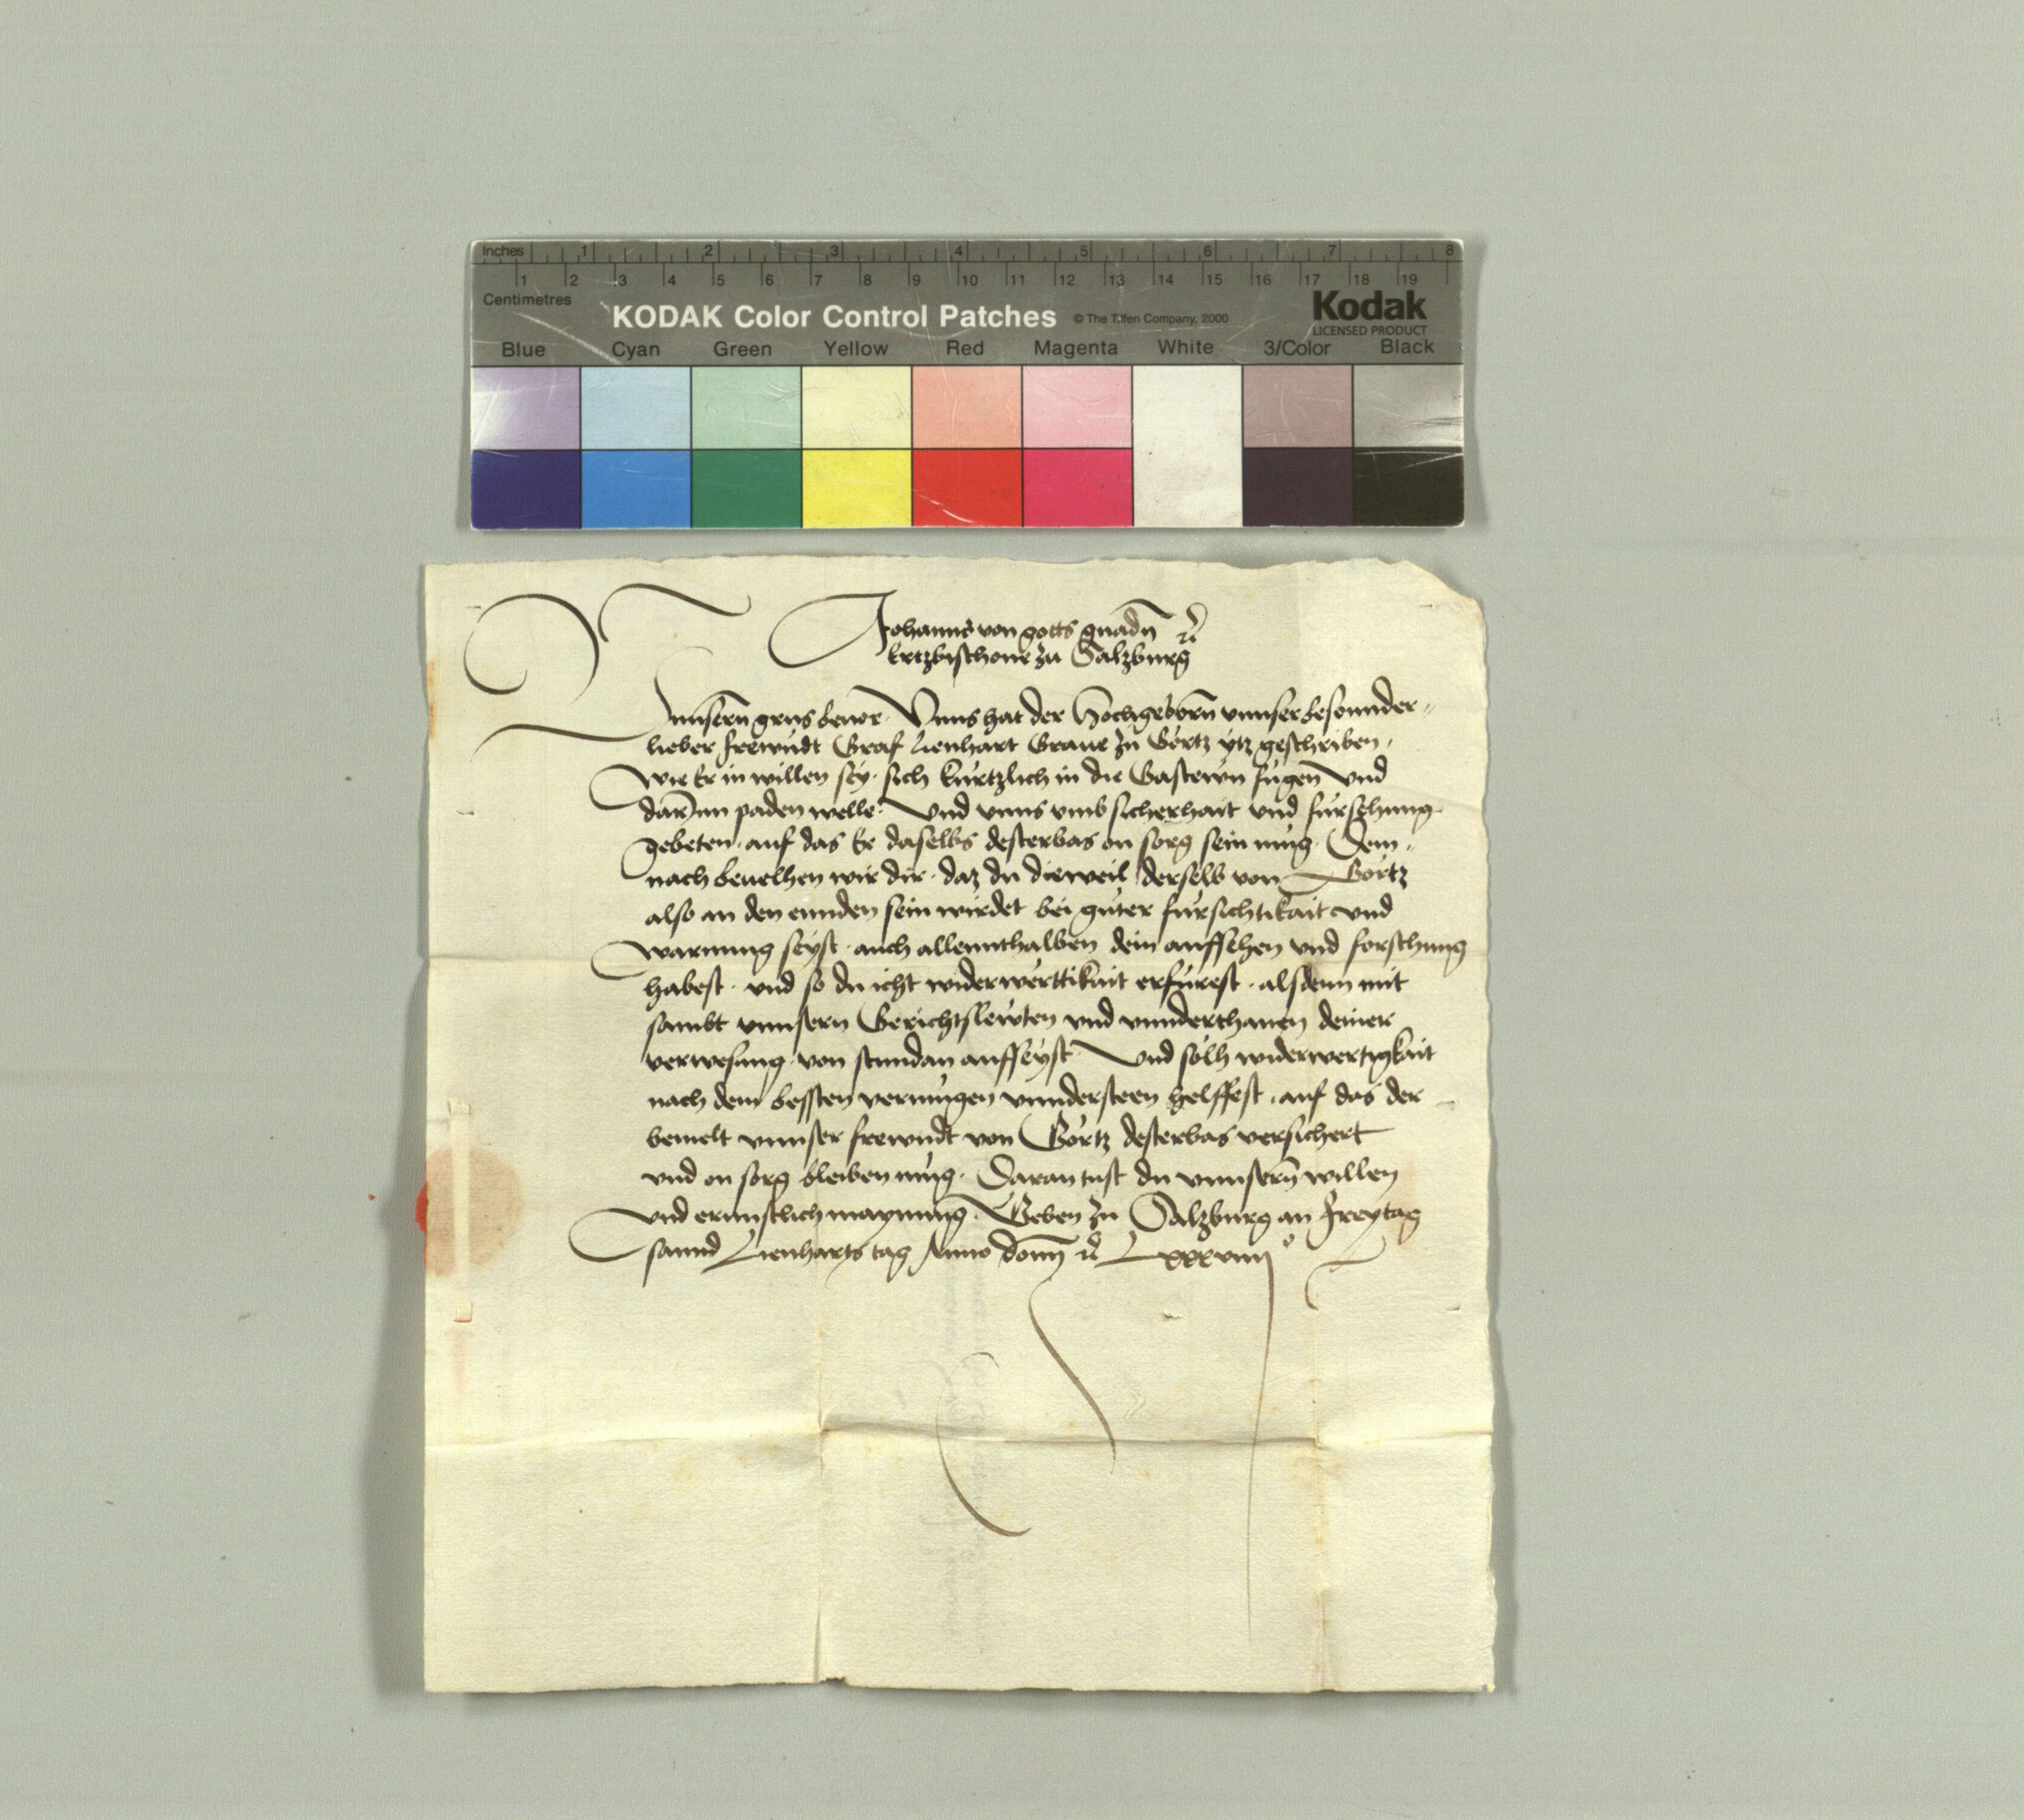 Inches 1 2 3 4 5 6 7 8
1 2 3 4 5 6 7 8 9 10 11 12 13 14 15 16 17 18 19
Centimetres
KODAK Color Control Patches © The Tiffen Company, 2000 Kodak
LICENSED PRODUCT
Blue Cyan Green Yellow Red Magenta White 3/Color Black
Johanns von gotts gnadn̄ ꝛc̄
Ertzbischoue zu Salzburg
Vnnsern̄ grus beuor. Vnns hat der Hochgeborn̄ vnnser besonnder
lieber frewndt Graf Lienhart Graue zu Görtz ytz geschriben,
wie Er in willen sey. sich kurtzlich in die Gastewn fugen Vnd
darInn paden welle. Vnd vnns vmb sicherhait vnd fursehung.
gebeten. auf das Er daselbs desterbas on sorg sein mug. Dem
nach beuelhen wir dir. daz du dieweil derselb von Görtz
also an den ennden sein wirdet bei guter fursichtikait vnd
warnung seyst. auch allennthalben dein aufsehen vnd forschung
habest. vnd so du icht widerwerttikait erfurest. alsdenn mit
sambt vnnsern Gerichtslewten vnd vnnderthanen deiner
verwesung. von stundan aufseyst. Vnd sölh widerwertigkait
nach dem bessten vermugen vnndersteen helffest. auf das der
bemelt vnnser frewndt von Görtz desterbas versichert
vnd on sorg bleiben mug. Daran tust du vnnsern̄ willen
vnd ernnstlich maynung. Geben zu Salzburg an Freytag
sannd Lienharts tag Anno domī ꝛc̄ Lxxxviiijo